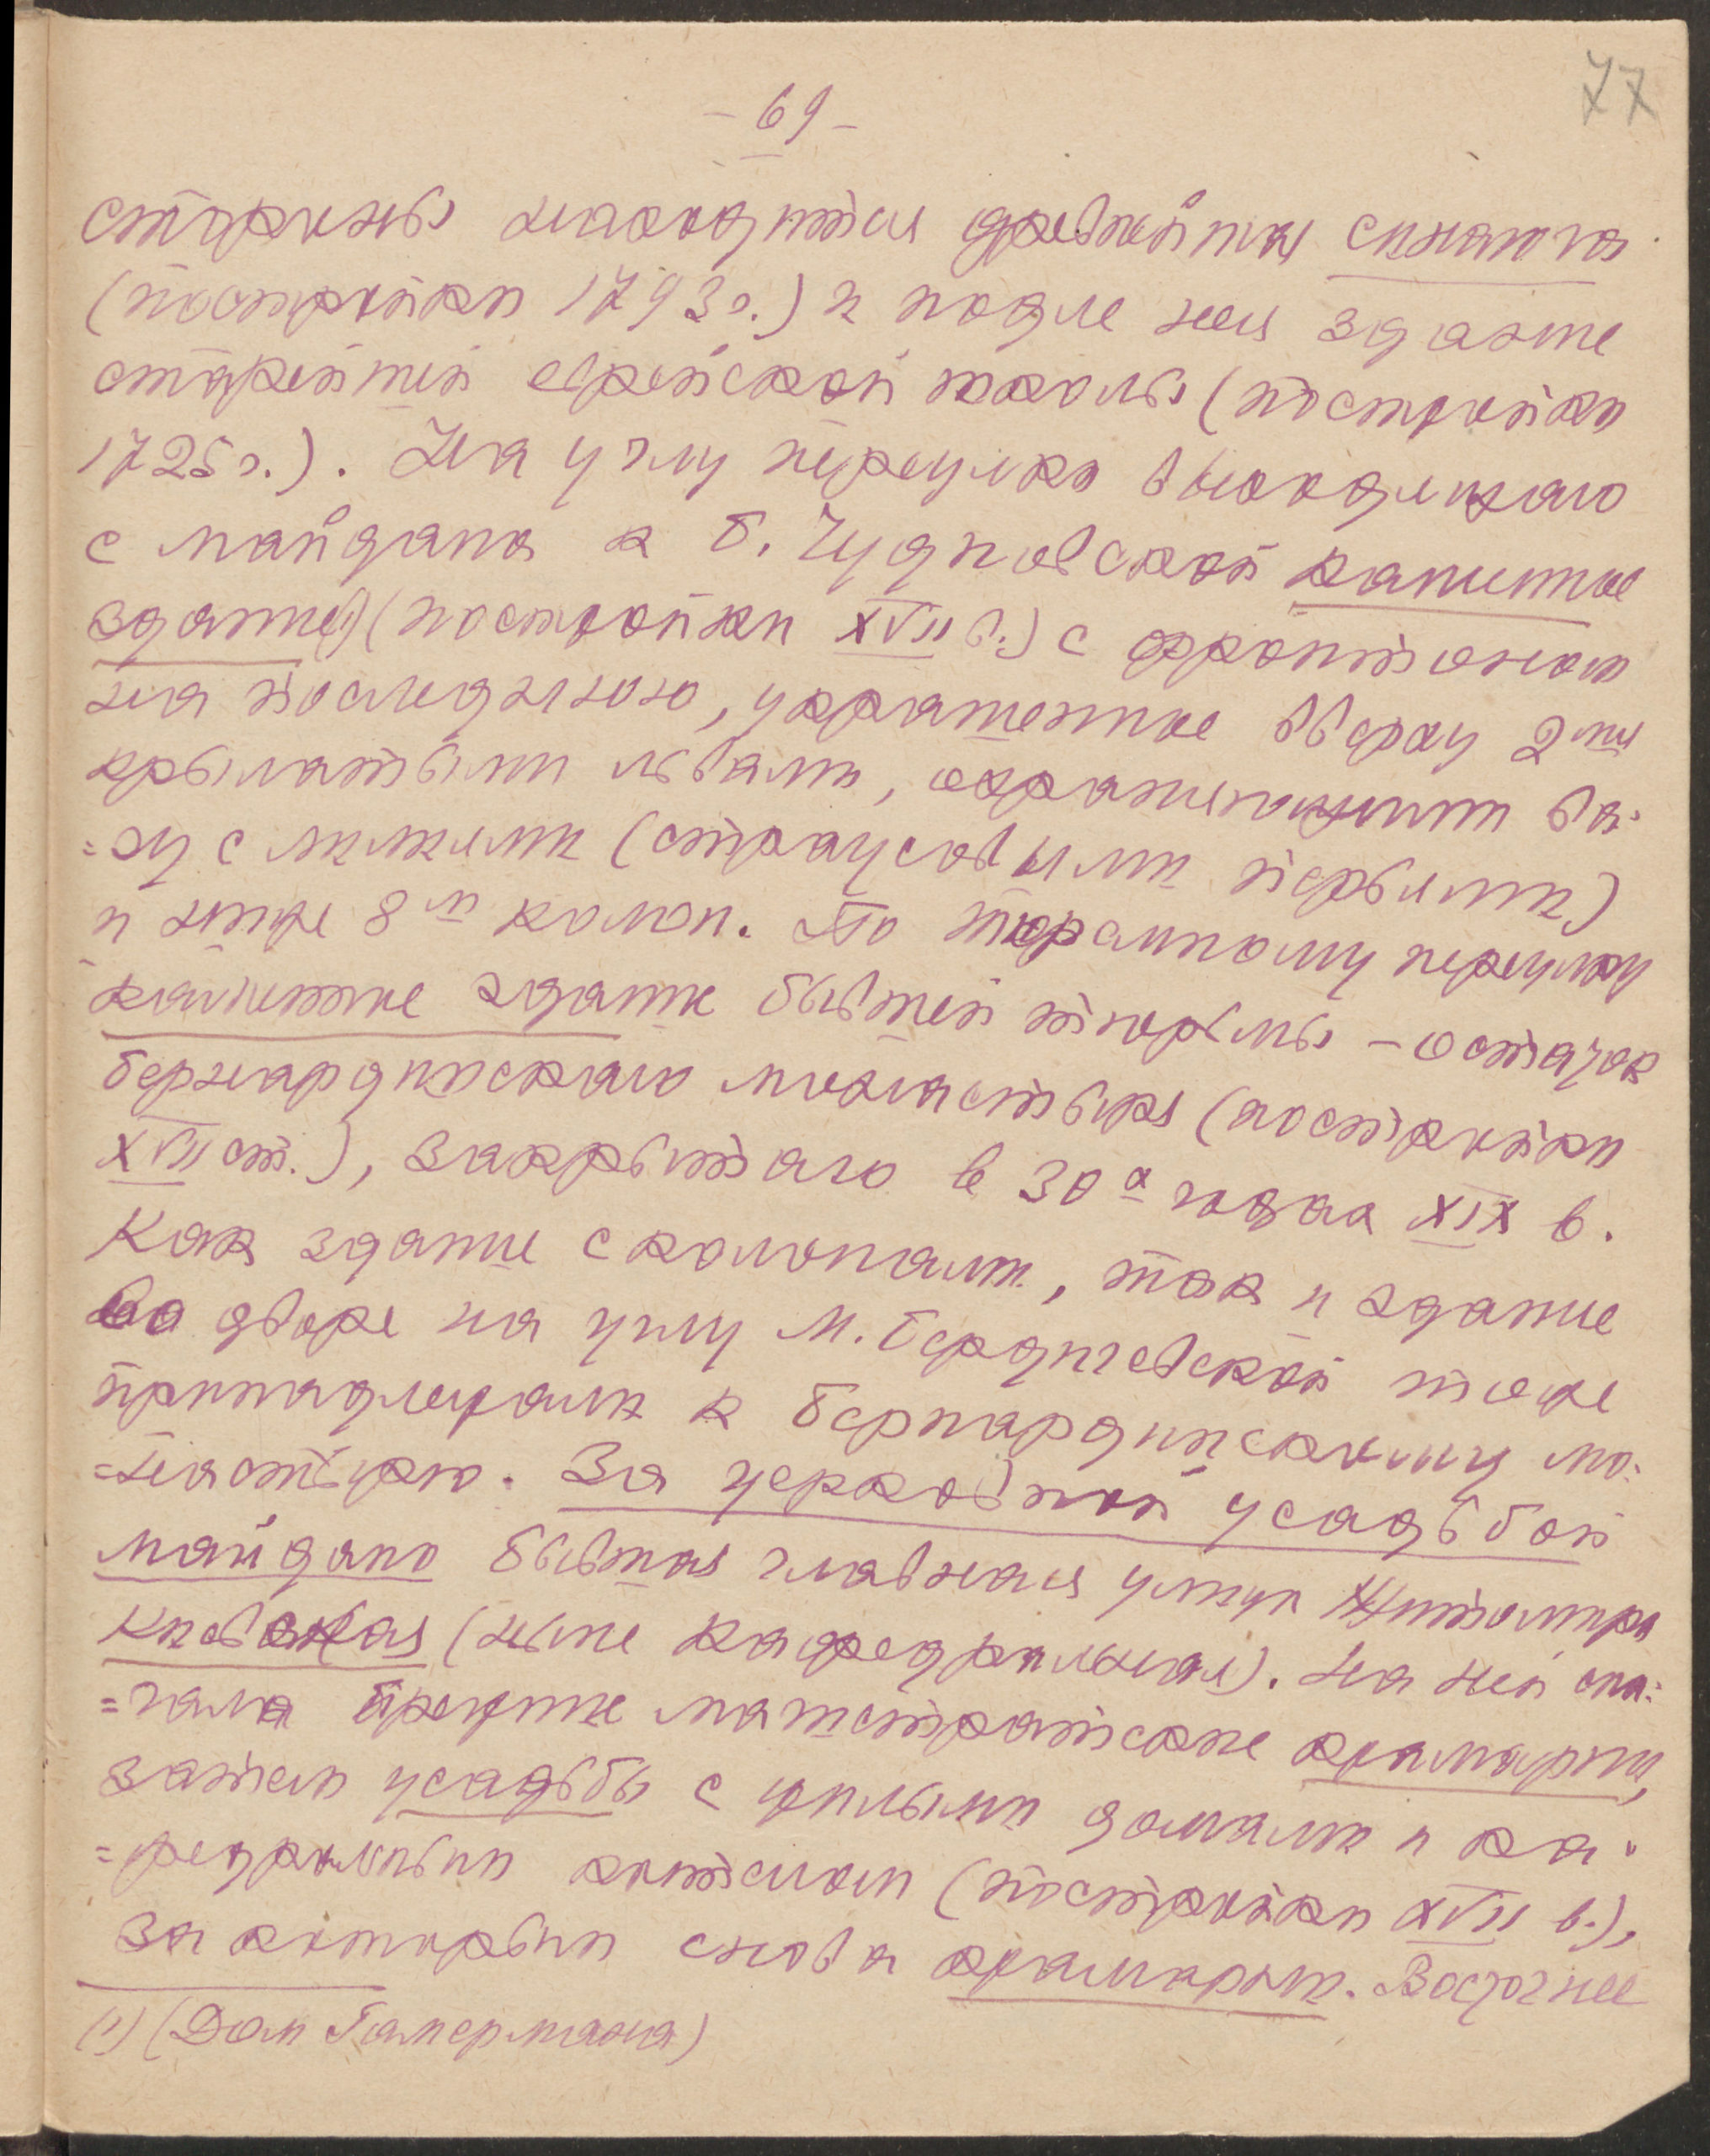 77
- 69 -
стороны находится древнейшая синагога
(постройки 1793г.) и подле нея здание
старейшей еврейской школы (постройки
1725г.). На углу переулка выходящаго
с майдана к б. Чудновской каменное
здание1) (постройки XVII в.) с фронтоном
на последнюю, украшенное вверху 2мя
крылатыми львами, охраняющими ва-
=зу с лилиями (страусовыми перьями)
и ниже 8ю колон. По тюремному переулку
каменное здание бывшей тюрьмы - остаток
бернардинскаго монастыря (постройки
XVII ст.), закрытаго в 30х годах XIX в.
Как здание с колонами, так и здание
во дворе на углу М. Бердичевской тоже
принадлежали к Бернардинскому мо-
=настырю. За церковной усадьбой
майдана бывшая главная улица Житомира
Киевская (ныне Кафедральная). На ней сна-
=чала прежние магистратские крамарни,
затем усадьбы с жилыми домами и ка-
=федральным костелом (постройки XVII в.),
за которым снова крамарни. Восточнее
(1) (Дом Гамермана)